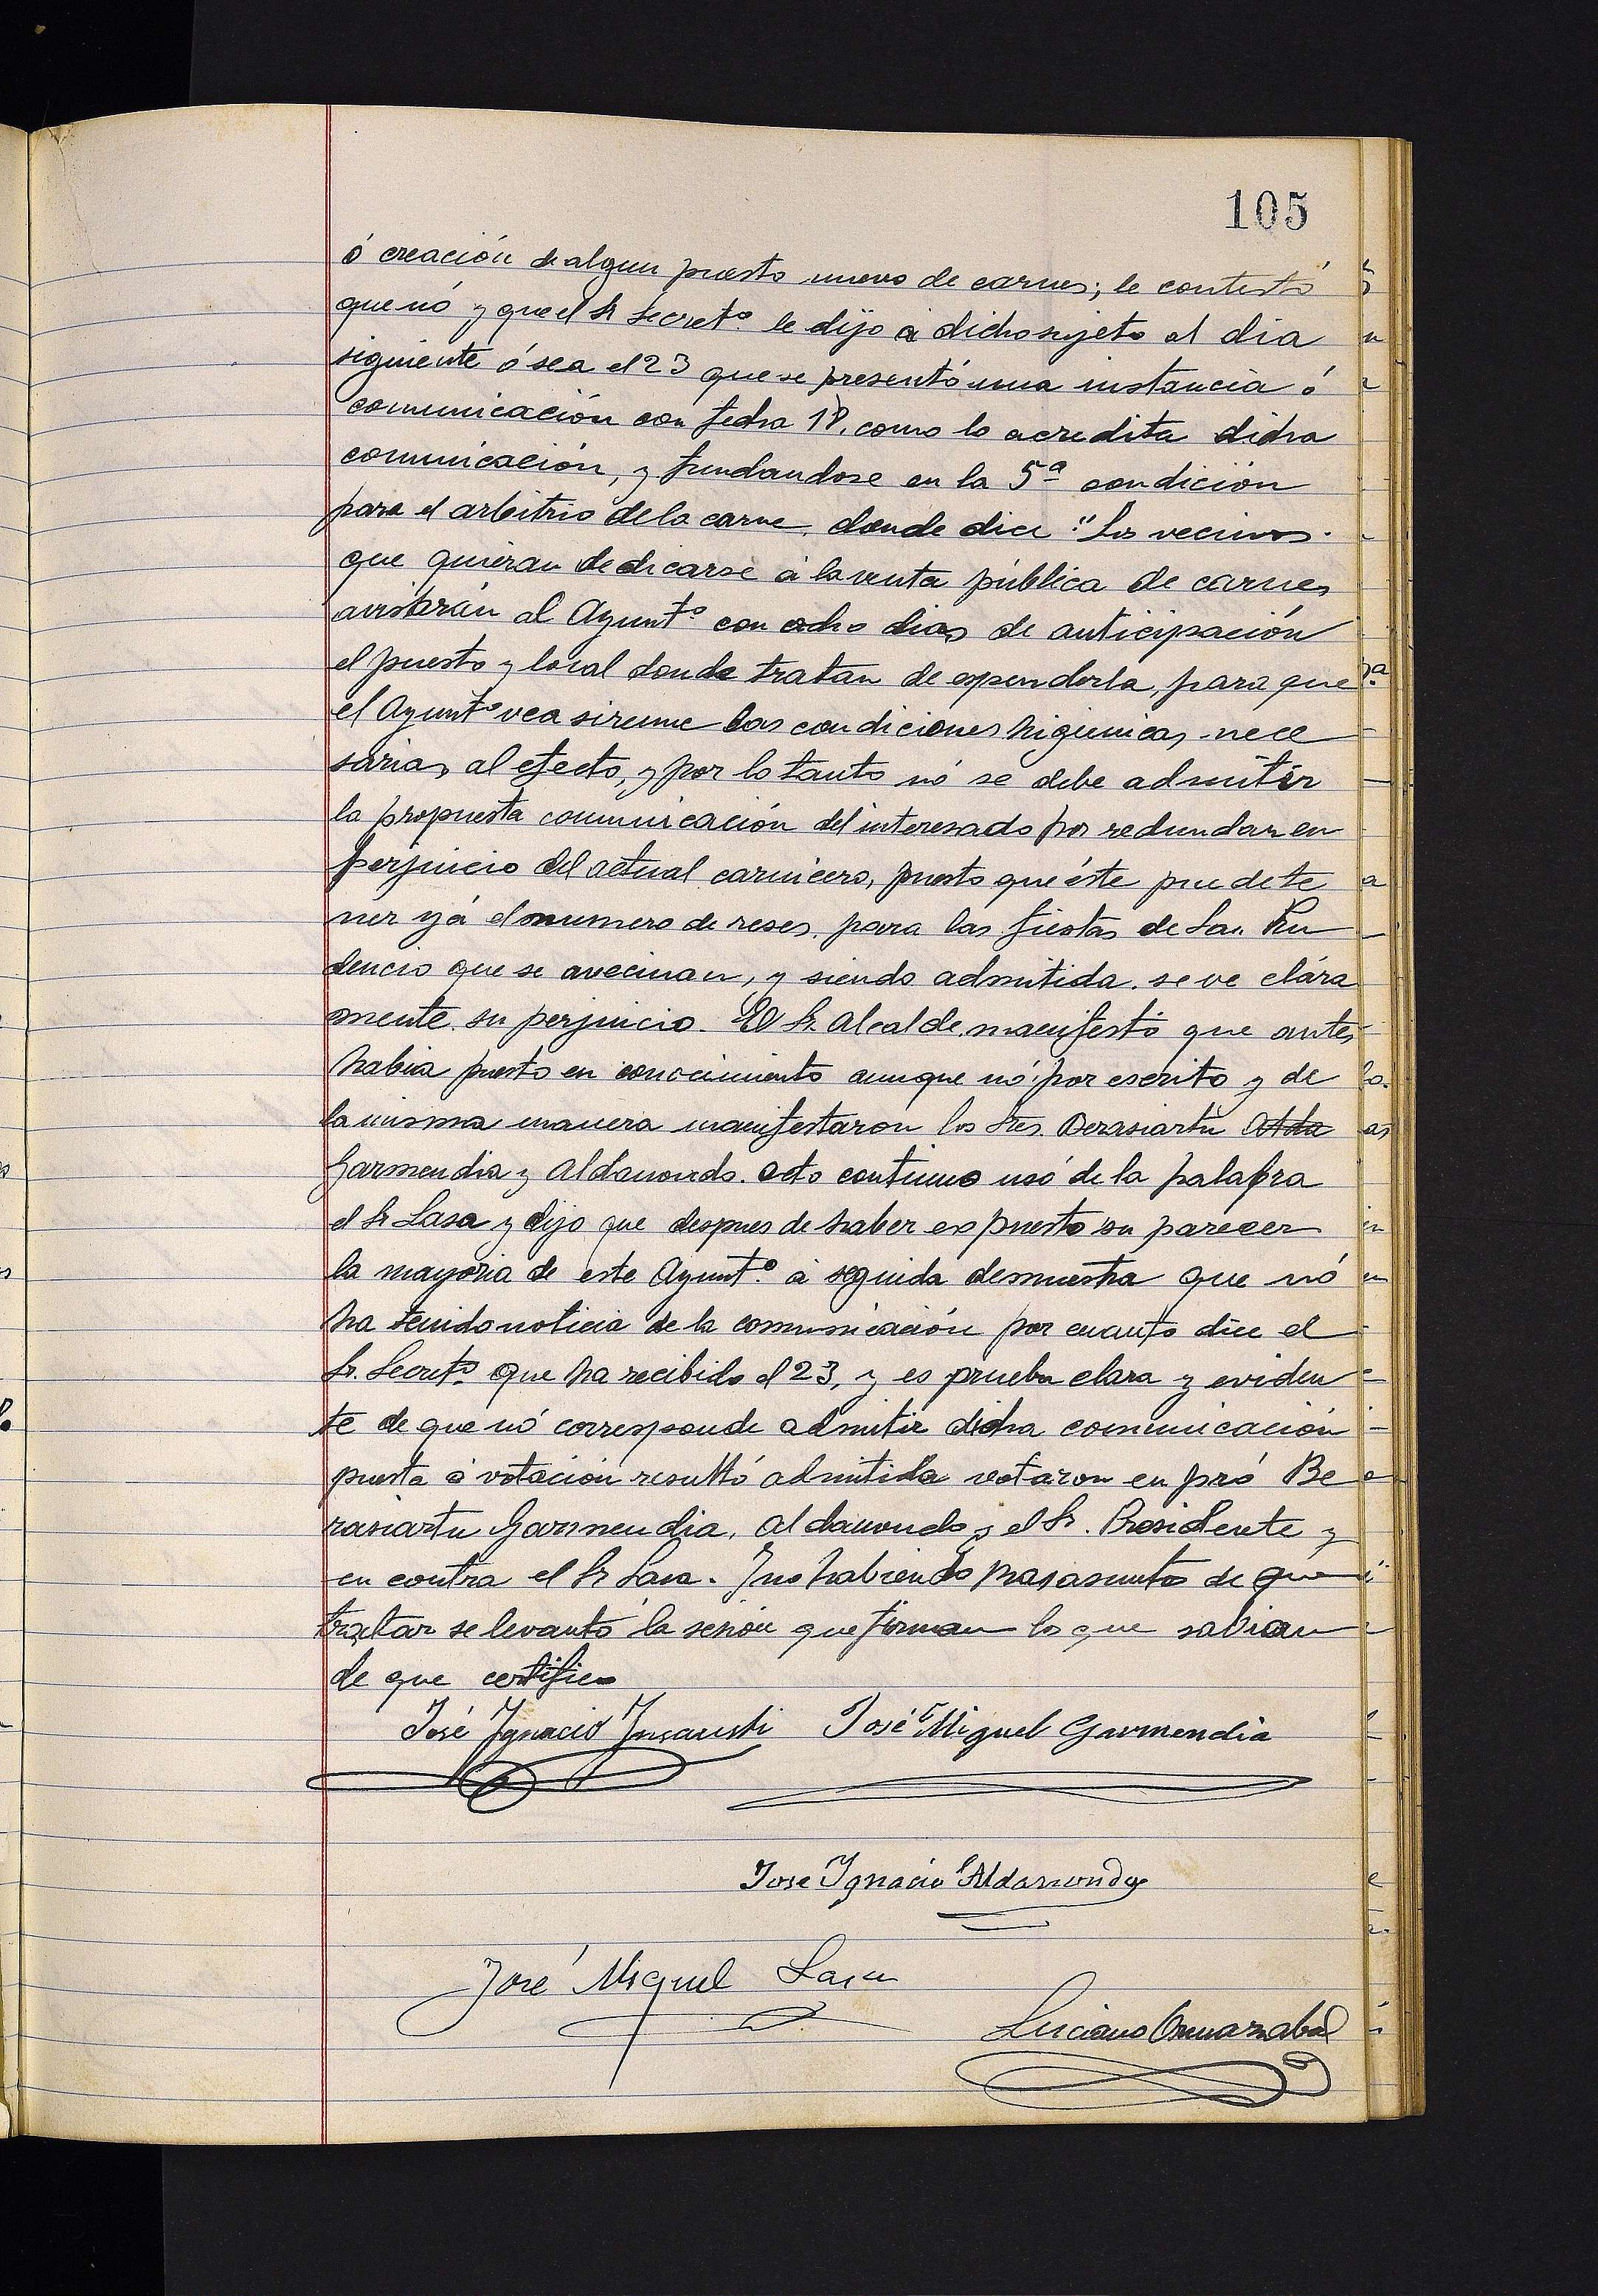 105
ó creación de algun puesto nuevo de carnes; le contestó
que nó y que el Sr Secretº le dijo á dicho sujeto al dia
siguiente ó sea el 23 que se presentó una instancia ó
comunicación con fecha 18. como lo acredita dicha
comunicación, y fundandose en la 5ª condición
para el arbitrio de la carne, donde dice "Los vecinos
que quieran dedicarse á la venta pública de carnes
avisarán al Ayuntº con ocho dias de anticipación
el puesto y local donde tratan de espenderla, para que
el Ayuntº vea si reune las condiciones higienicas nece
sarias al efecto, y por lo tanto nó se debe admitir
la propuesta comunicación del interesado por redundar en
perjuicio del actual carnicero, puesto que éste puede te
ner yá el numero de reses para las fiestas de San Pru
dencio que se avecinan, y siendo admitida se ve clara
mente su perjuicio. El Sr. Alcalde manifestó que antes
habia puesto en conocimiento aunque nó por escrito y de
la misma manera manifestaron los Sres. Berasiartu Alda
Garmendia y Aldamondo. Acto continuo usó de la palabra
el Sr Lasa y dijo que despues de haber expuesto su parecer
la mayoria de este Ayuntº á seguida demuestra que nó
ha tenido noticia de la comunicación por cuanto dice el
Sr. Secretº que ha recibido el 23, y es prueba clara y eviden
te de que nó corresponde admitir dicha comunicación
puesta á votación resultó admitida votaron en pró Be
rasiartu Garmendia, Aldamondo y el Sr. Presidente y
en contra el Sr Lasa. Y no habiendo mas asunto de que
tratar se levantó la sesión que firman los que sabian
de que certifico
José Ygnacio Ynsausti José Miguel Garmendia
Jose Ygnacio Aldamondo
José Miguel Lasa
Luciano Ormazabal